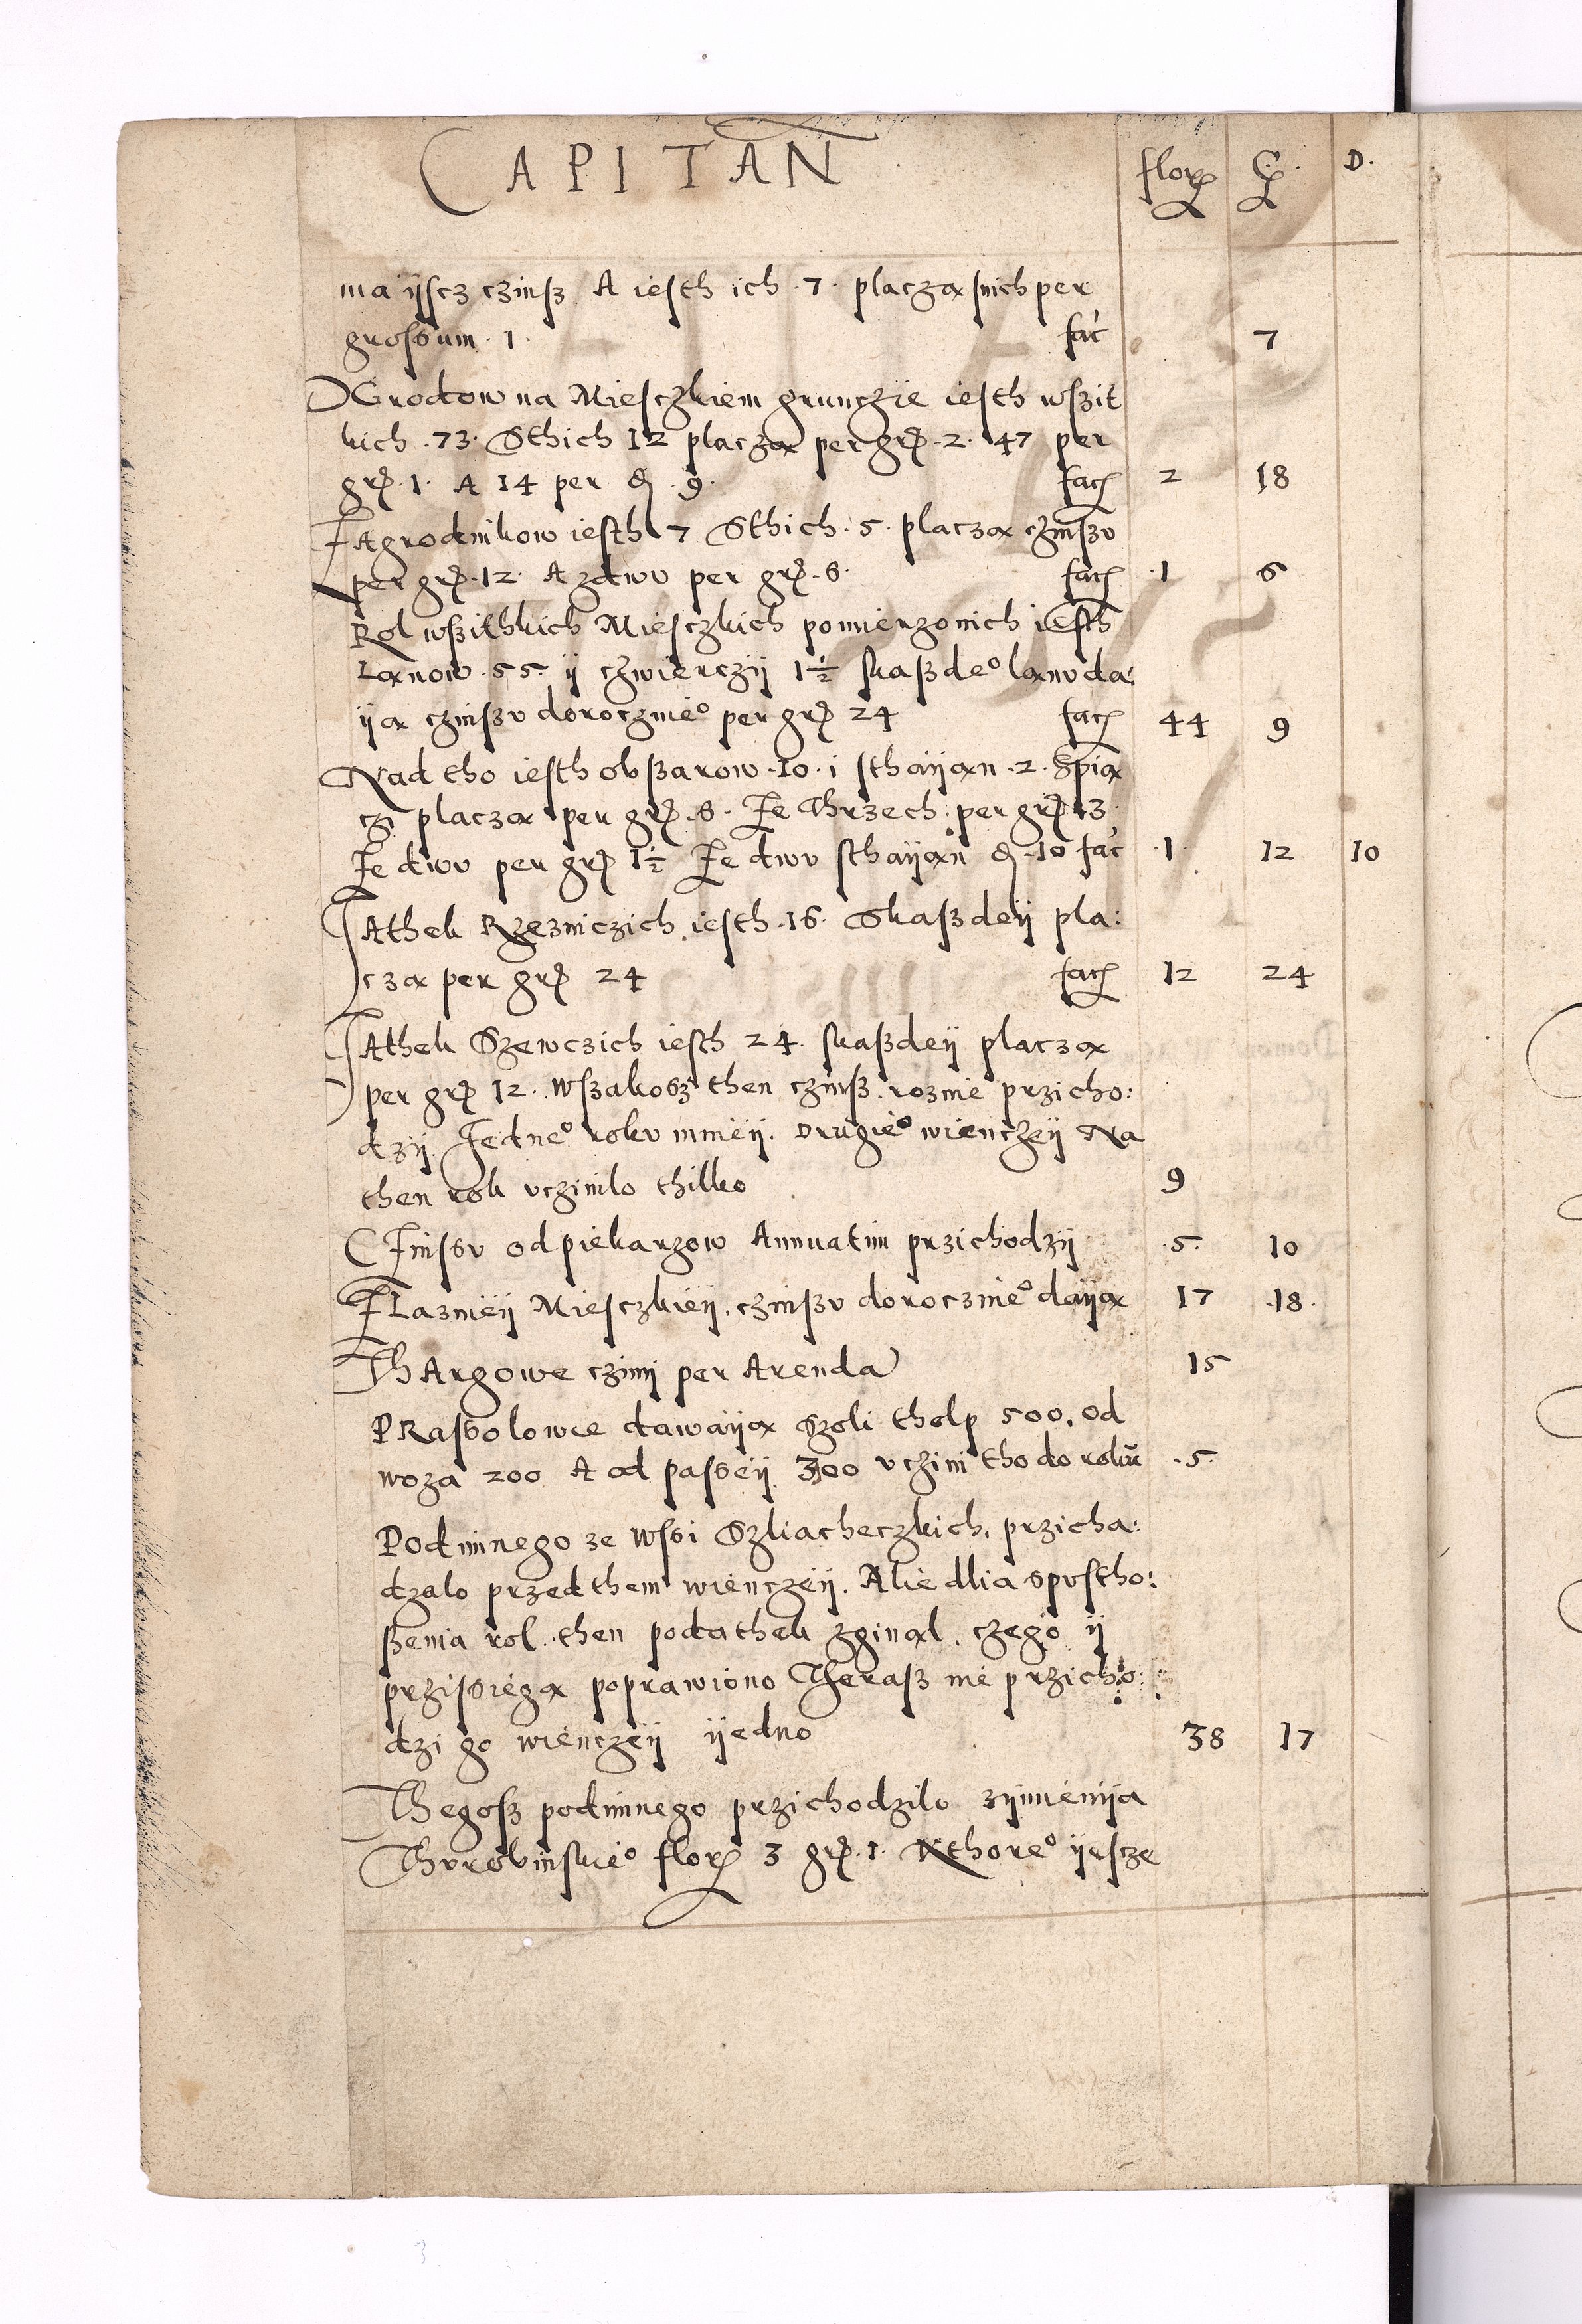 CAPITAN flor. G. D.
ma ijscz czinß. A iesth ich .7. placzą snich per
grossum .1. fac 7
OGrodow na Miesczkiem grunczie iesth wßit
kich .73. Sthich 12 placzą per gr. 2. 47 per
gr. 1. A 14 per d. 9. fac 2 18
ZAgrodnikow iesth 7 Sthich .5. placzą czinßv
per gr. 12. A zdwv per gr. 6. fac 1 6
Rol wßithkich Miesczkich pomierzonich iesth
Lanow .55. ij czwierczij 1½ skaßdeº lanv da:
iją czinßv doroczneº per gr. 24 fac 44 9
Nad tho iesth obßarow .10. i sthaiją̨n .2. Spią
czi placzą per gr. 6. Ze Thrzech per gr. 3.
Ze dwv per gr. 1½ Ze dwv sthaijąn d. 10 fac 1 12 10
IAthek Rzezniczich iesth .16. Skaßdeij pla:
czą per gr. 24 fac 12 24
IAthek Szewczich iesth 24. skaßdeij placzą
per gr. 12. Wßakosz then czinß roznie przicho:
dzij. Iedneº rokv mnieij. Drugieº wienczeij Na
then rok vczinilo thilko 9
CZinsv od piekarzow Annuatim przichodzij 5. 10
Z Lazniеij Miesczkieij, czinßv doroczneº daiją 17 18.
ThArgowe czini per Arenda 15
PRasolowie dawaiją Szoli tholp 500. od
woza 200 A od passeij 300 vczini tho do rokũ .5.
Podimnego ze Wsi Szliacheczkich, przicha:
dzalo przedthem wienczeij. Alie dlia spvstho:
ßenia rol. then podathek zginąl. czego ij
przisiegą poprawiono Theraß nie przicho:
dzi go wienczeij ijedno 38 17
Thegoß podimnego przichodzilo zijmienija
Thvrobinskieº flor. 3 gr. 1. Kthoreº ijescze